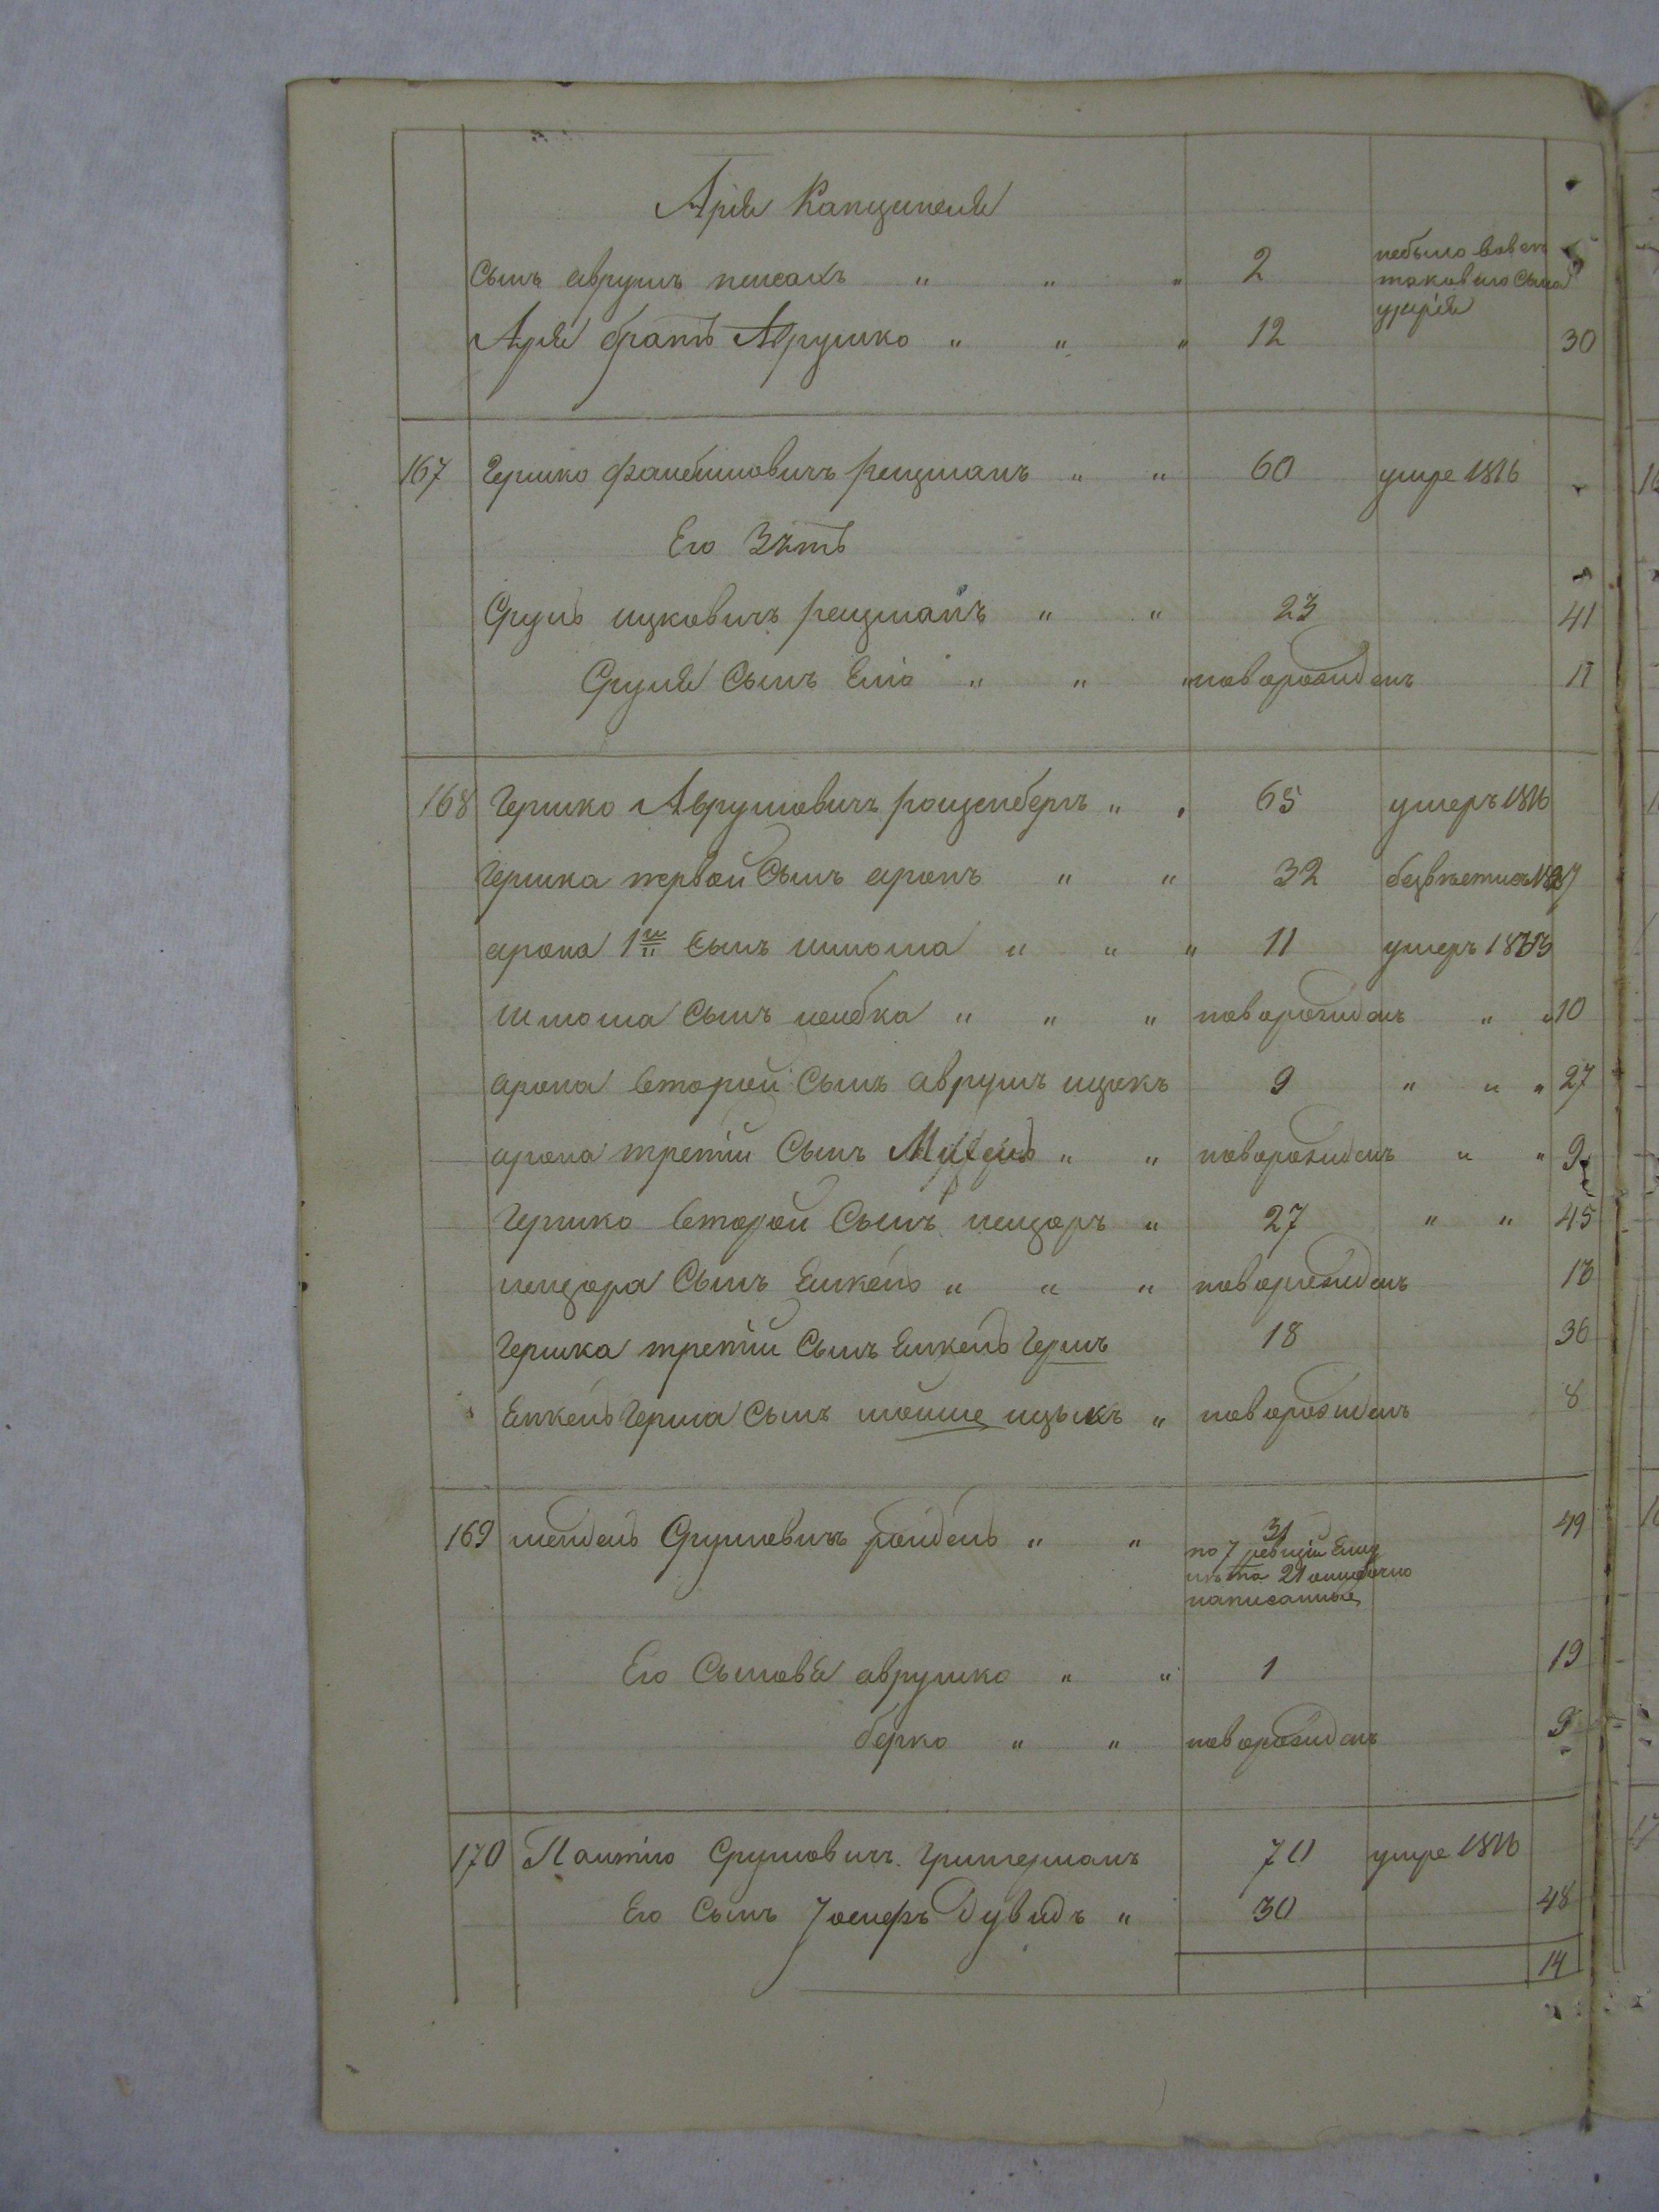 Арія Капципеля
сынъ аврумъ пейсахъ " " " 2 небыло вовсе таковаго сына уарія
Арія братъ Аврумко " " " 12 30
167 Гершко Фаибишовичъ рецманъ " " 60 умре 1816
Его Зять
Сруль ицковичъ рецманъ " " 23 41
Сруля Сынъ " " " новорожденъ 11
168 Гершко Аврумовичъ роценбергъ " " 65 умеръ 1816
Гершка первой Сынъ аронъ " " 32
арона 1й Сынъ шлома " " " 11 умеръ
шлома Сынъ лейбка " " " новорожденъ " " 10
арона второй Сынъ аврумъ ицокъ 9 " " " 27
арона третій Сынъ " " новорожденъ " " 9
Гершко второй Сынъ лейзоръ " 27 " " 45
лейзора Сынъ Янкель " " " новорожденъ 13
Гершка третій Сынъ Янкель Гершъ 18 36
Янкель Герша Сынъ мошше ицыкъ " новорожденъ 8
169 мендель Срулювичъ рейдель " " 31 49
по 7 ревизіи Ему
лѣта 21 ошибочно
написанные
Его Сыновья аврумко " " 1 19
берко " " новорожденъ 9
170 Срулювичъ Гритерманъ 70 умре 1816
Его Сынъ Іосифъ Дувидъ " 30 48
14